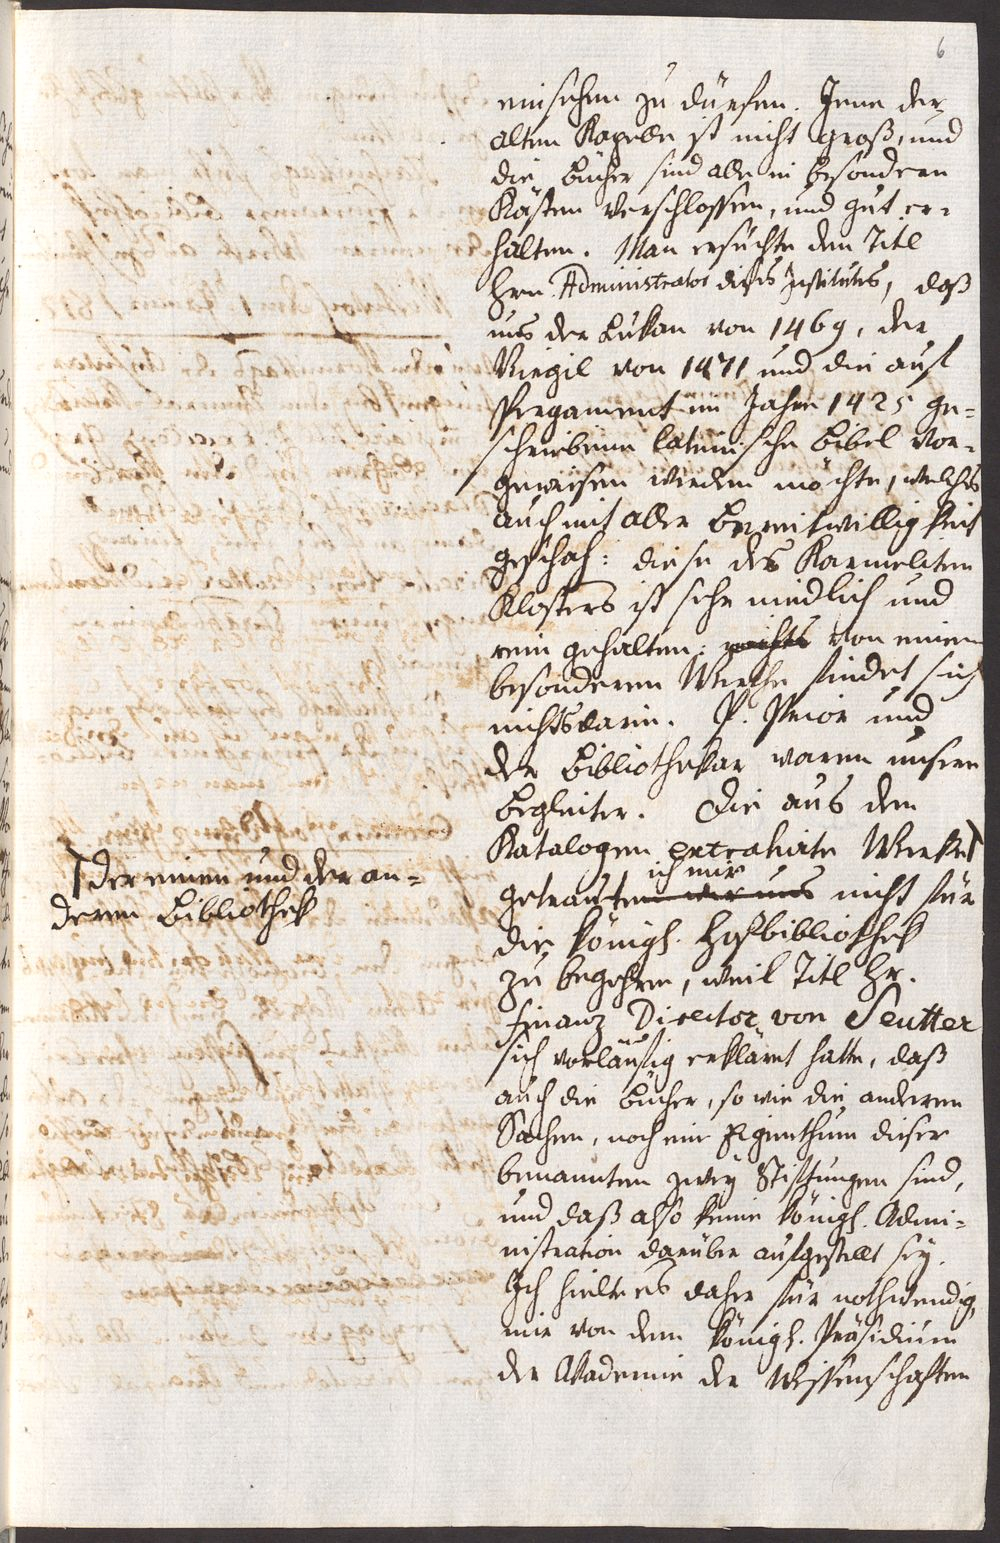 6
einsehen zu dürfen. Jene der
alten Kapelle ist nicht groß, und
die Bücher sind alle in besondern
Kästen verschlossen, und gut er-
halten. Man ersuchte den Titl
Hrn. Administrator dieses Institutes, daß
uns der Lukan von 1469, der
Virgil von 1471 und die auf
Pergament im Jahre 1425 ge-
schriebene lateinische Bibel vor-
gewiesen werden möchte, welches
auch mit aller Bereitwilligkeit
geschah: diese des Karmeliten
Klosters ist sehr niedlich und
rein gehalten; nichts von einem
besonderen Werthe findet sich
nichts darin. P. Prior und
der Bibliothekar waren unsere
Begleiter. Die aus den
Katalogen extrahirte Werke
der einen und der an-
deren Bibliothek
ich mir
getrauten wir uns nicht für
die königl. Hofbibliothek
zu begehren, weil Titl Hr.
Finanz Director von Seutter
sich vorläufig erklärt hatte, daß
auch die Bücher, so wie die anderen
Sachen, noch ein Eigenthum dieser
benannten zwey Stiftungen sind,
und daß also keine königl. Admi-
nistration darüber aufgestellt sey.
Ich hielt es daher für nothwendig,
mir von dem königl. Präsidium
der Akademie der Wissenschaften